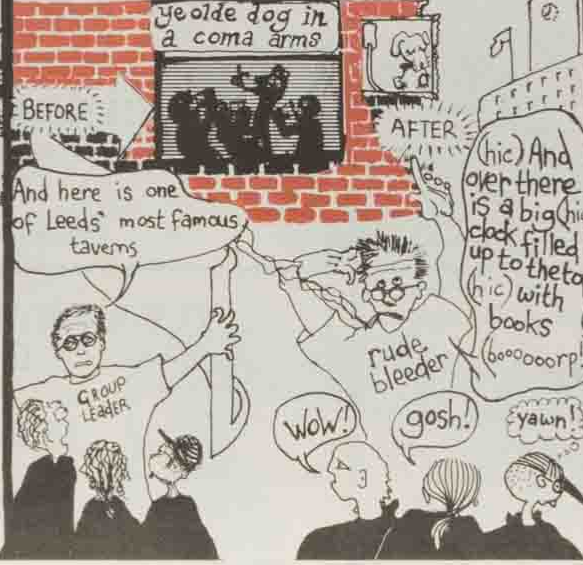 ye olde dog in
a coma arms
BEFORE
And here is one
of Leeds' most famous
taverns
GROUP
LEADER
AFTER
(hic) And
over there
is a big (hi
clock filled
up to the to
(hic) with
books
(boooooorp!
rude
bleeder
wow!
gosh!
yawn!